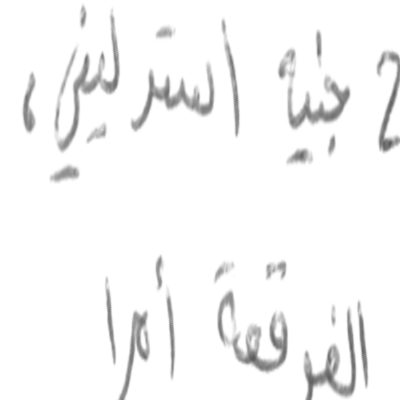 2 جنيه استرليني ،
الفرقعة أمرا